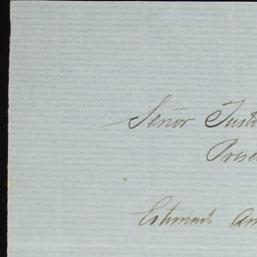 Señor Just
Prese
Estimad Am